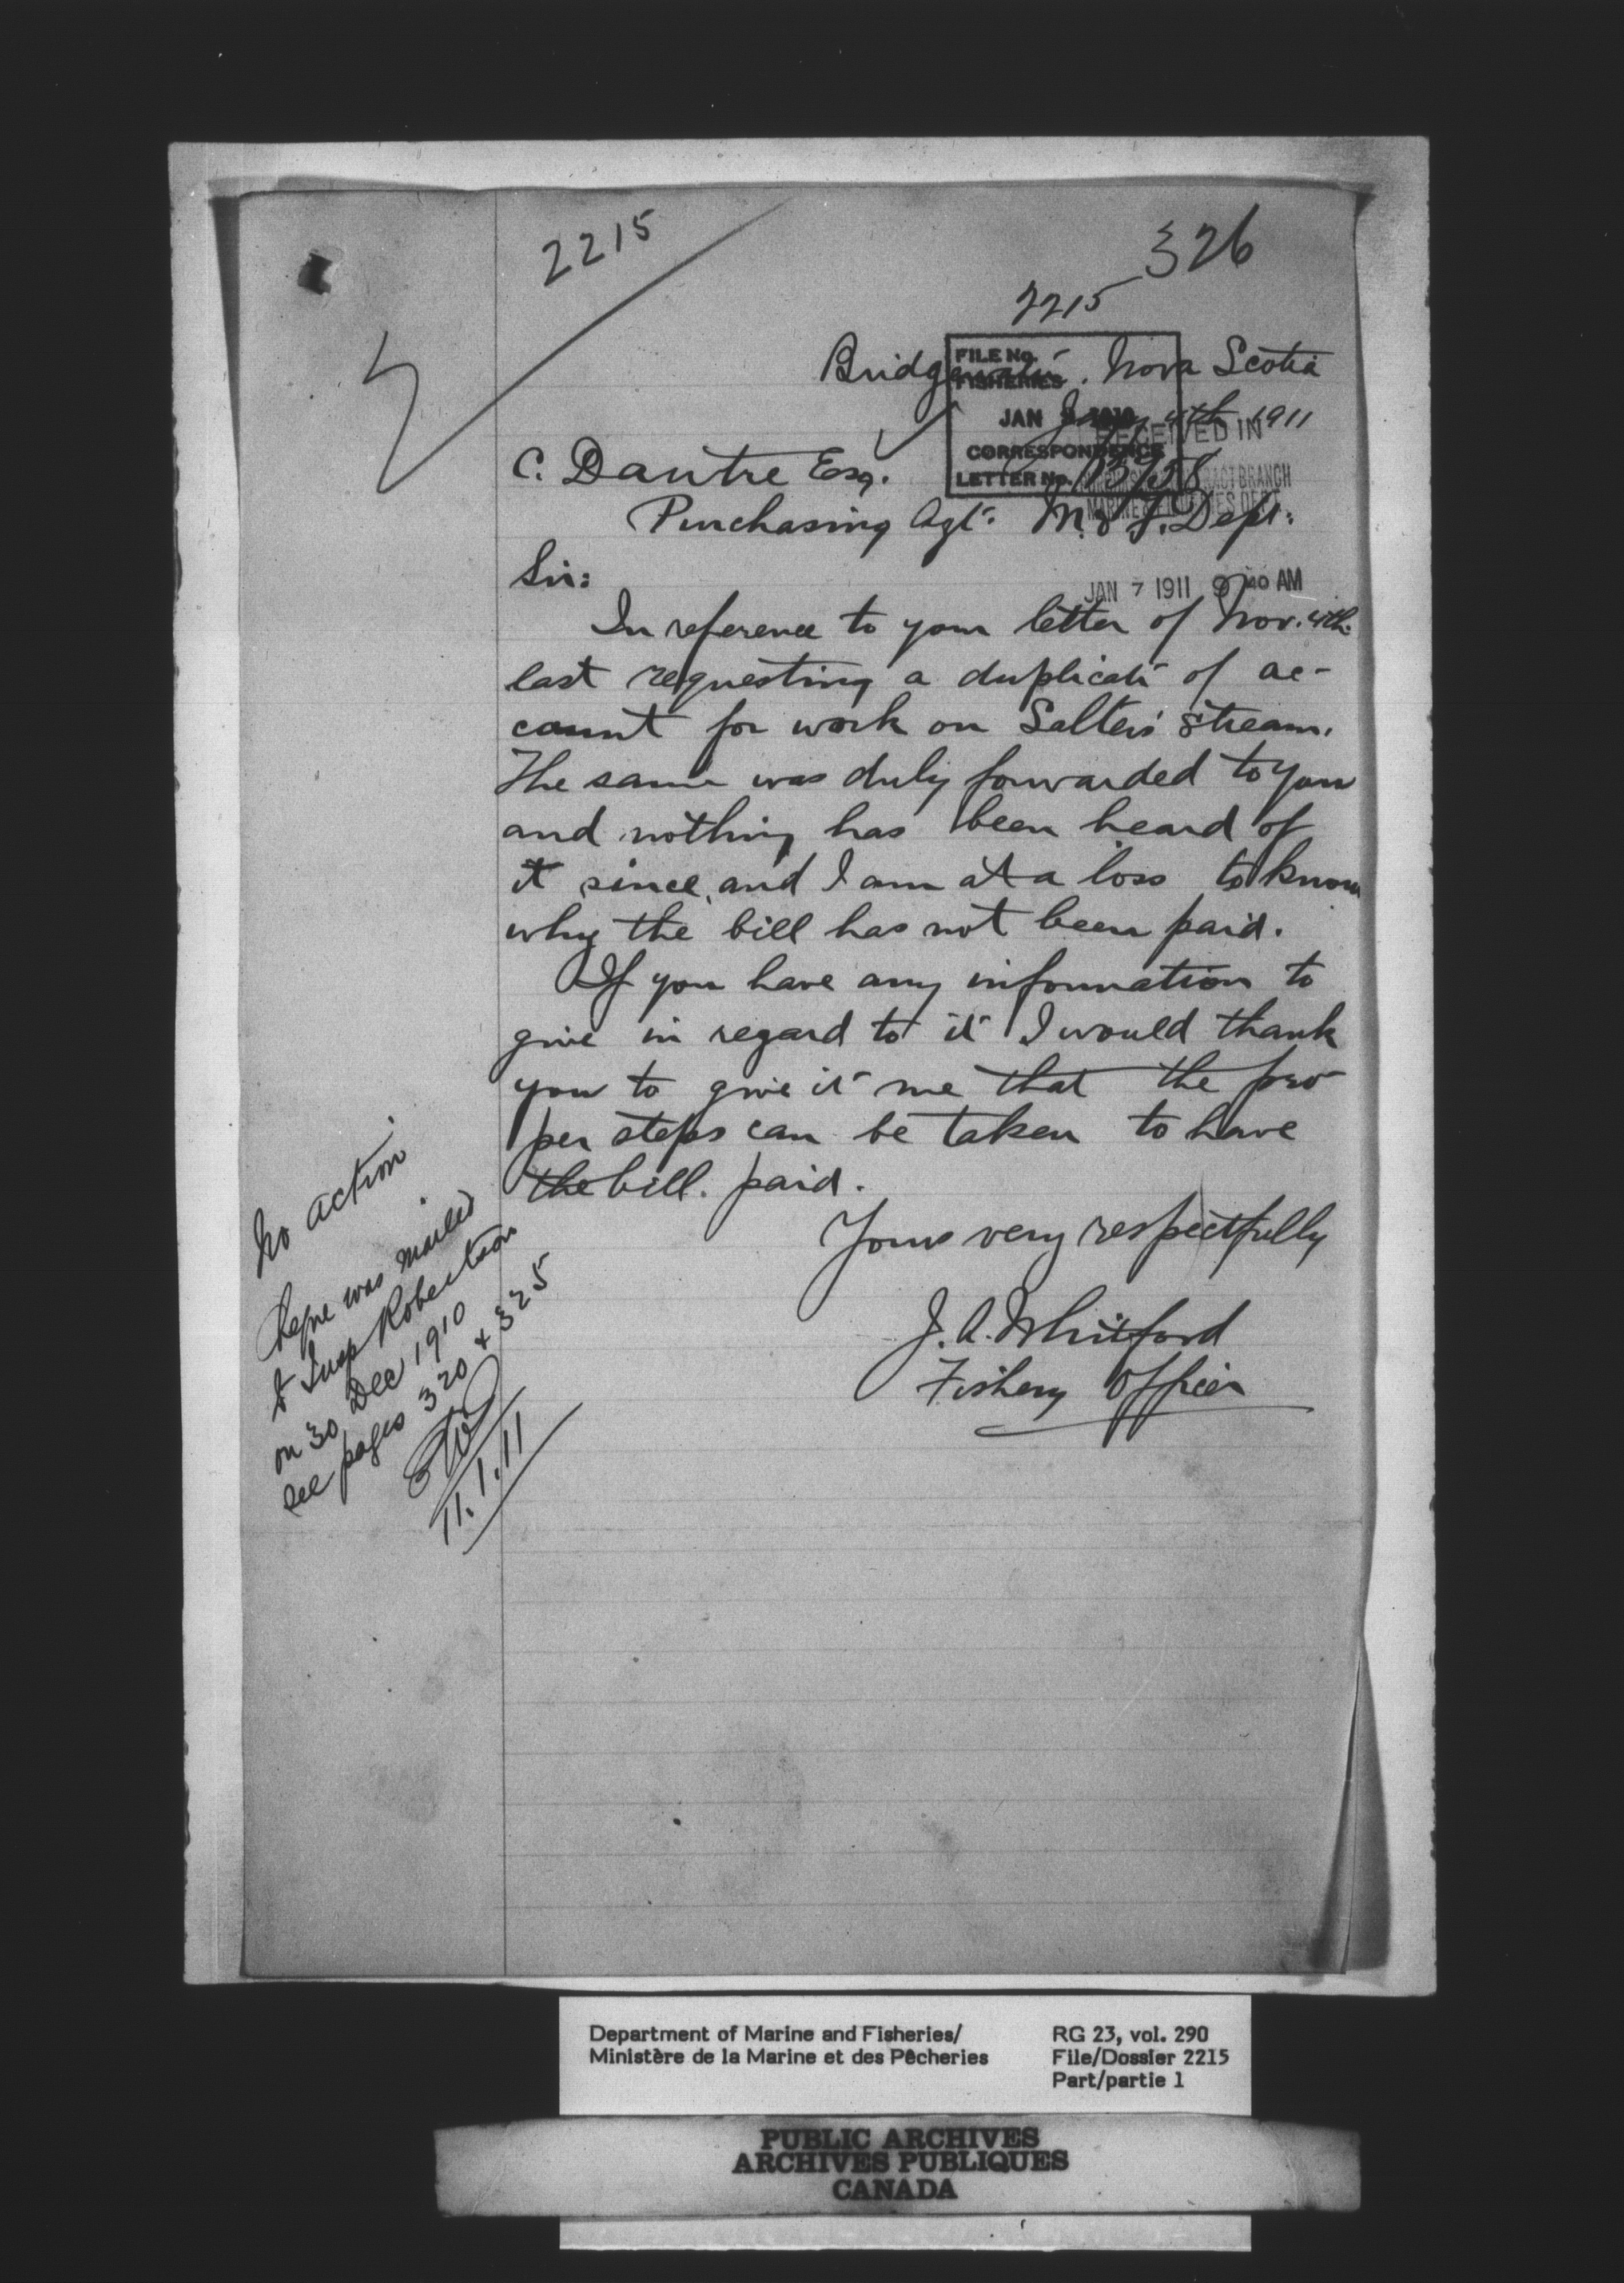 2215
326
2215
Bridgewater. Nova Scotia
FILE No.
FISHERIES
JAN
4th 1911
RECEIVED IN
CORRESPONDENCE
LETTER No.
CONTRACT BRANCH
MARINE & FISHERIES DEPT.
C. Dautre Esq.
Purchasing Agt. M. & F. Dept.
Sir:
JAN 7 1911 9 40 AM
In reference to your letter of Nov. 4th.
last requesting a duplicate of ac-
count for work on Salters stream.
The same was duly forwarded to you
and nothing has been heard of
it since, and I am at a loss to know
why the bill has not been paid.
If you have any information to
give in regard to it I would thank
you to give it me that the pro-
per steps can be taken to have
the bill. paid.
Yours very respectfully
J. A. Whitford
Fishery Officer
No action
Cheque was mailed
to Insp Robertson
on 30 Dec 1910
see pages 320 + 325
11.1.11
Department of Marine and Fisheries/
Ministère de la Marine et des Pêcheries
RG 23, vol. 290
File/Dossier 2215
Part/partie 1
PUBLIC ARCHIVES
ARCHIVES PUBLIQUES
CANADA